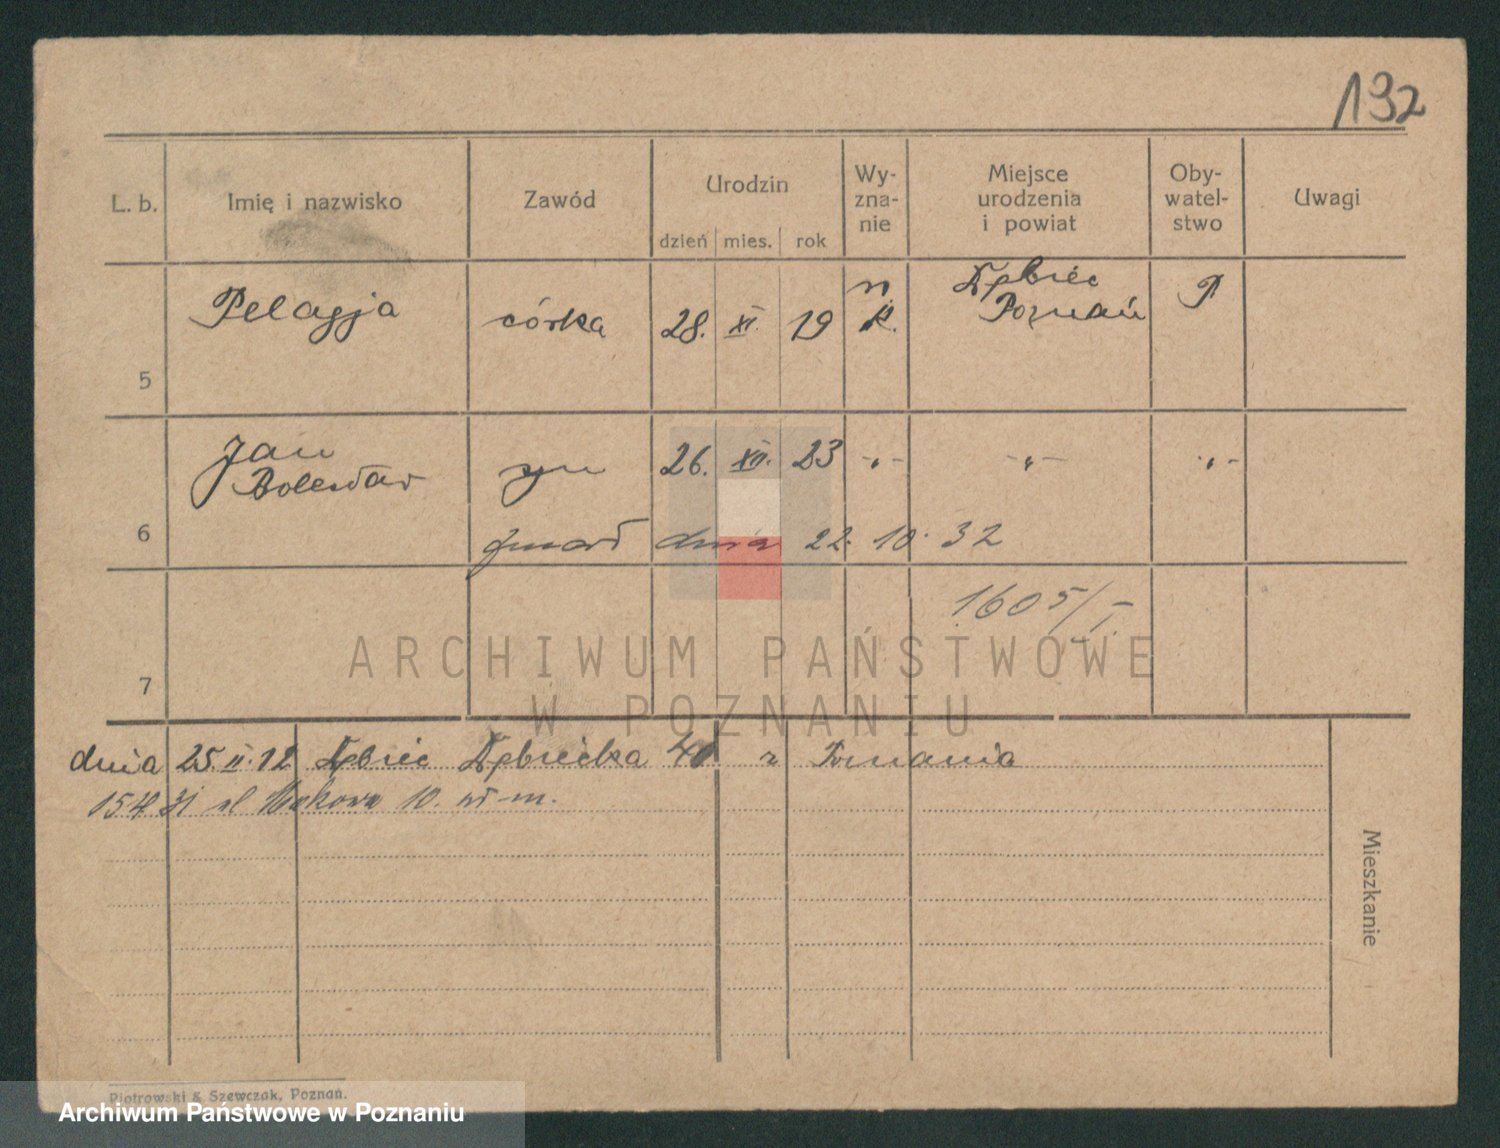 132
L. b. Imię i nazwisko Zawód Urodzin Wy- Miejsce Oby- Uwagi
zna- urodzenia watel-
nie i powiat stwo
dzień mies. rok
Pelagja córka 28. XI. 19 r. k. Dębiec Poznań P
5
Jan syn 26. XII. 23 -„- -„- -„-
Bolesław
6 zmarł dnia 22. 10. 32
1605/I
7
dnia 25 II. 12 Dębiec Dębiecka 40 z Poznania
10.
Mieszkanie
ARCHIWUM PAŃSTWOWE
W POZNANIU
Piotrowski & Szewczak, Poznań.
Archiwum Państwowe w Poznaniu